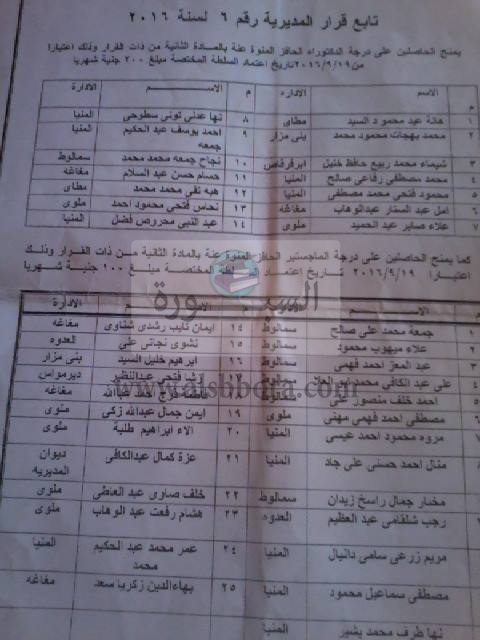 تابع قرار المديرية رقم ٦ لسنة ٢٠١٦
يمنح الحاصلين على درجة الدكتوراه الحافز المنوة عنة بالمادة الثانية من ذات القرار وذلك اعتبارا
من ٢٠١٦/٩/١٩ تاريخ اعتماد السلطة المختصة مبلغ ٢٠٠ جنية شهريا
م الاسم الاداره م الاسم الادارة
١ هالة عبد محمود السيد مطاى ٨ نها عدلى تونى سطوحى المنيا
٢ محمد بهجات محمود محمد بنى مزار ٩ احمد يوسف عبد الحكيم جمعه المنيا
٣ شيماء محمد ربيع حافظ خليل ابوقرقاص ١٠ نجاح جمعه محمد محمد سمالوط
٤ محمد مصطفى رفاعى صالح المنيا ١١ حسام حسن عبد السلام مغاغه
٥ محمود فتحى محمد مصطفى المنيا ١٢ هبه تقى محمد محمد مطاى
٦ امل عبد الستار عبدالوهاب مغاغه ١٣ نحاس فتحى محمود احمد ملوى
٧ علاء صابر عبد الحميد ملوى ١٤ عبد النبي محروص فضل المنيا
كما يمنح الحاصلين على درجة الماجستير الحافز المنوة عنة بالمادة الثانية من ذات القرار وذلك
اعتبارا ٢٠١٦/٩/١٩ تاريخ اعتماد السلطة المختصة مبلغ ١٠٠ جنية شهريا
السبورة
www.alsbbora.com
الادارة
١ جمعة محمد على صالح سمالوط ١٤ ايمان نايب رشدى شناوى مغاغه
٢ علاء ميهوب محمود سمالوط ١٥ نشوى نجاتى على العدوه
٣ عبد المعز احمد فهمى سمالوط ١٦ ابرهيم خليل السيد بنى مزار
٤ على عبد الكافى محمد ابو العلا فتحى عبدالنظير ديرمواس
٥ احمد خلف منصور فرج احمد عبدالله مغاغه
٦ مصطفى احمد فهمى مهنى ملوى ١٩ ايمن جمال عبدالله زكى ملوى
مروه محمود احمد عيسى المنيا ٢٠ الاء ابراهيم طلبة ملوى
منال احمد حسنى على جاد المنيا ٢١ عزة كمال عبدالكافى ديوان المديريه
مختار جمال راسخ زيدان سمالوط ٢٢ خلف صاوى عبد العاطى ملوى
رجب شلقامى عبد العظيم العدوه ٢٣ هشام رفعت عبد الوهاب ملوى
مريم زرعى سامى دانيال المنيا ٢٤ عمر محمد عبد الحكيم محمد المنيا
مصطفى سماعيل محمود المنيا ٢٥ بهاءالدين زكريا سعد مغاغه
نها ظرف محمد بشير المنيا